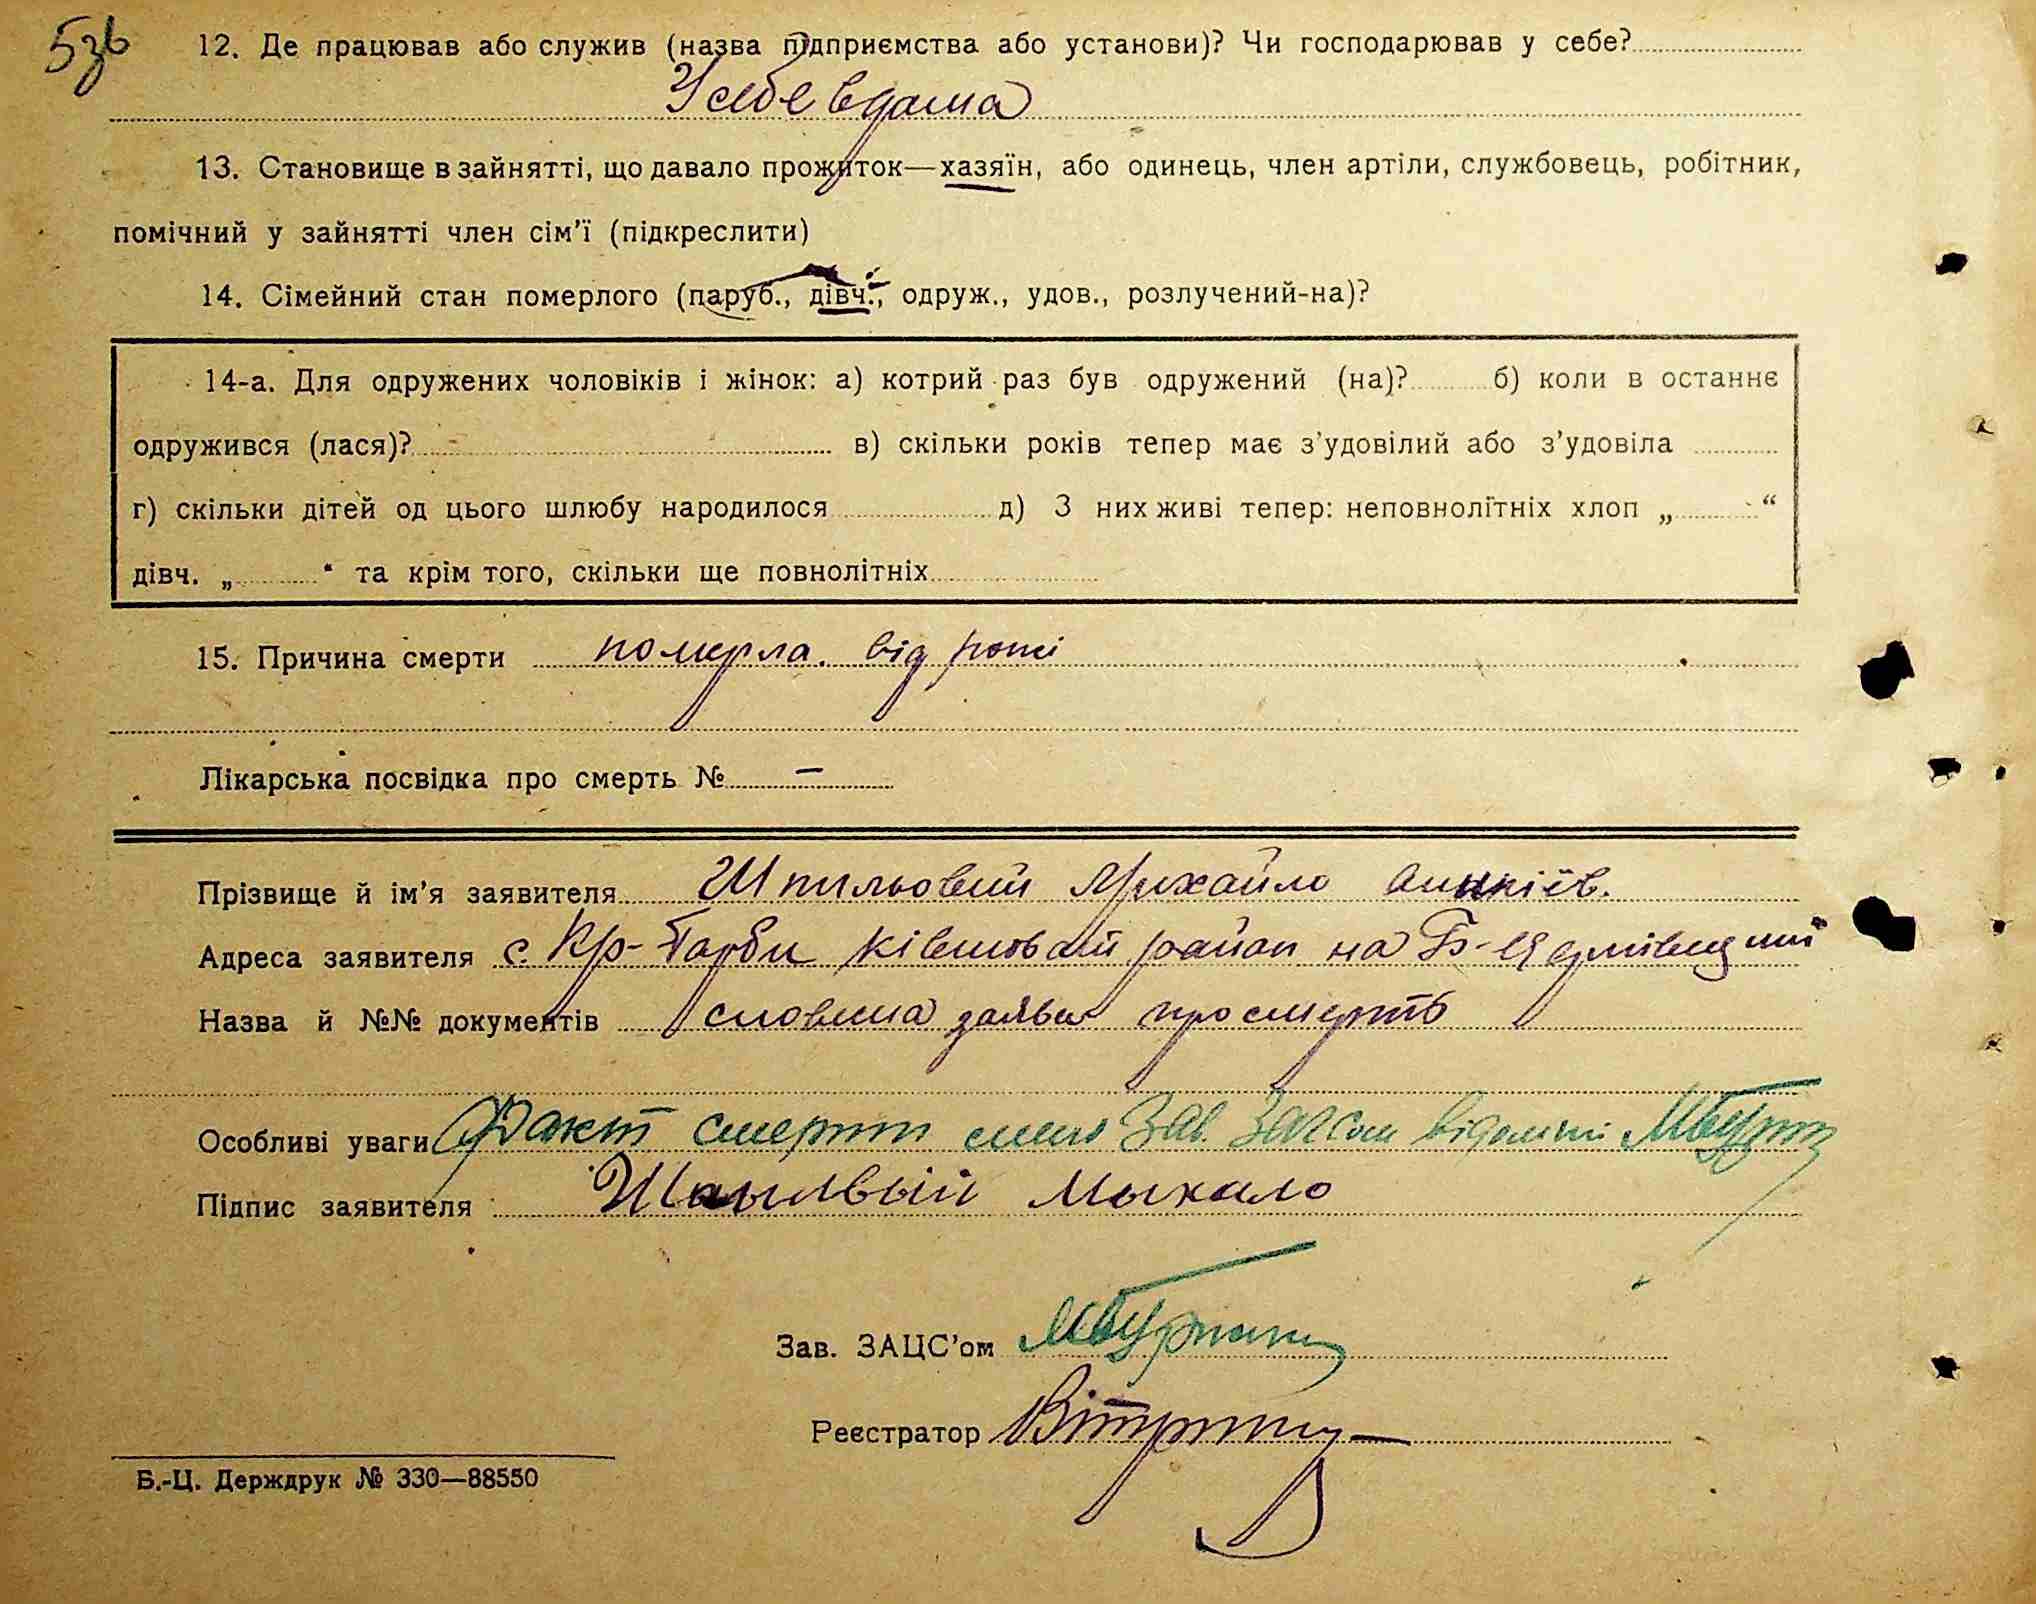 12. Де працював або служив (назва підприємства або установи)? Чи господарював у себе?
У себе вдома
13. Становище в зайнятті, що давало прожиток—хазяїн, або одинець, член артіли, службовець, робітник,
помічний у зайнятті член сім'ї (підкреслити)
14. Сімейний стан померлого (паруб., дівч., одруж., удов., розлучений-на)?
14-а. Для одружених чоловіків і жінок: а) котрий раз був одружений (на)? б) коли в останнє
одружився (лася)? в) скільки років тепер має з'удовілий або з'удовіла
г) скільки дітей од цього шлюбу народилося д) З них живі тепер: неповнолітніх хлоп „ “
дівч. „ “ та крім того, скільки ще повнолітніх
15. Причина смерти померла від рожі
Лікарська посвідка про смерть № —
Прізвище й ім'я заявителя Шпильовий Михайло
Адреса заявителя с. Кр-Гарби район на Б-
Назва й №№ документів словесна заява про смерть
Особливі уваги Факт смерти мені Зав. Загсом відомий
Підпис заявителя Мыхало
Зав. ЗАЦС'ом
Реєстратор
Б.-Ц. Держдрук № 330—88550